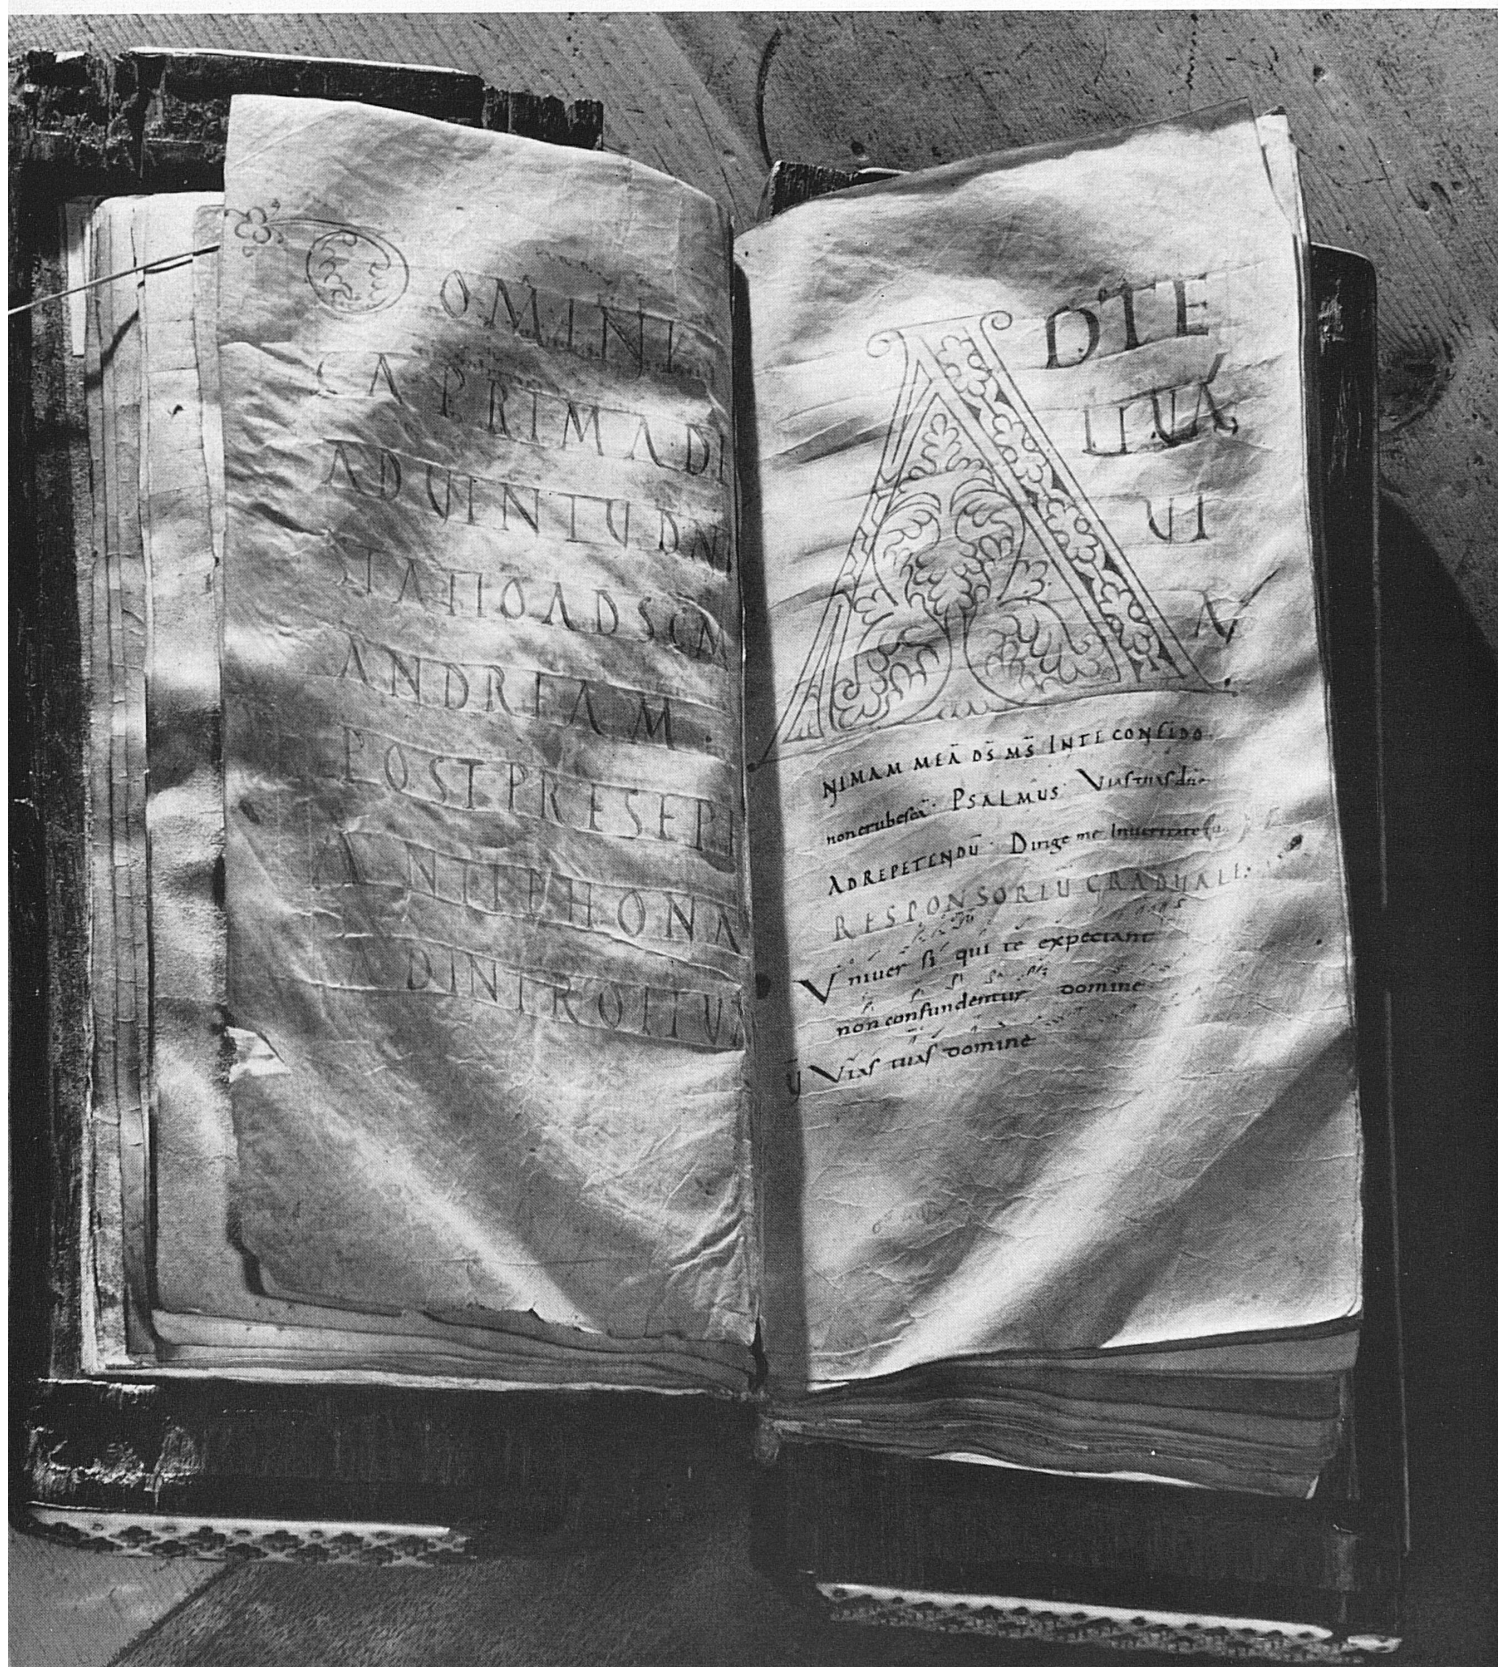 DOMINI
CA PRIMA DE
ADUENTU DNI
STATIO AD SCAM
ANDREAM.
POST PRESEPE
ANTIPHONA
AD INTROITUS
AD TE
LEUA
UI
A
NIMAM MEĀ D̄S M̄S IN TE CONFIDO.
non erubescā. PSALMUS Vias tuas dn̄e
AD REPETENDŪ. Dirige me In ueritate
RESPONSORIŪ GRADUALE.
Vniuersi qui te expectant
non confundentur domine
V Vias tuas domine